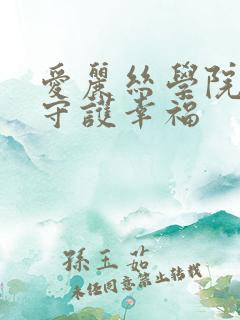 愛麗絲學院
守護幸福
孫玉茹
未经同意禁止转载